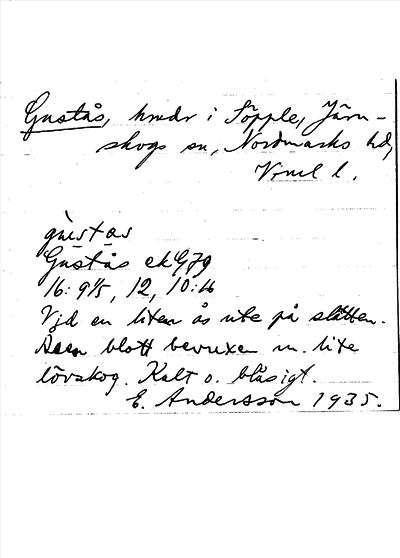 Gustås, hmdr i Töpple, Järn-
skogs sn, Nordmarks hd,
Vrml l.
gùstas
Gustås ek
16: 9 1/5, 12, 10:16
Vid en liten ås ute på slätten.
Åsen blott bevuxen m. lite
lövskog. Kalt o. blåsigt.
E. Andersson 1935.